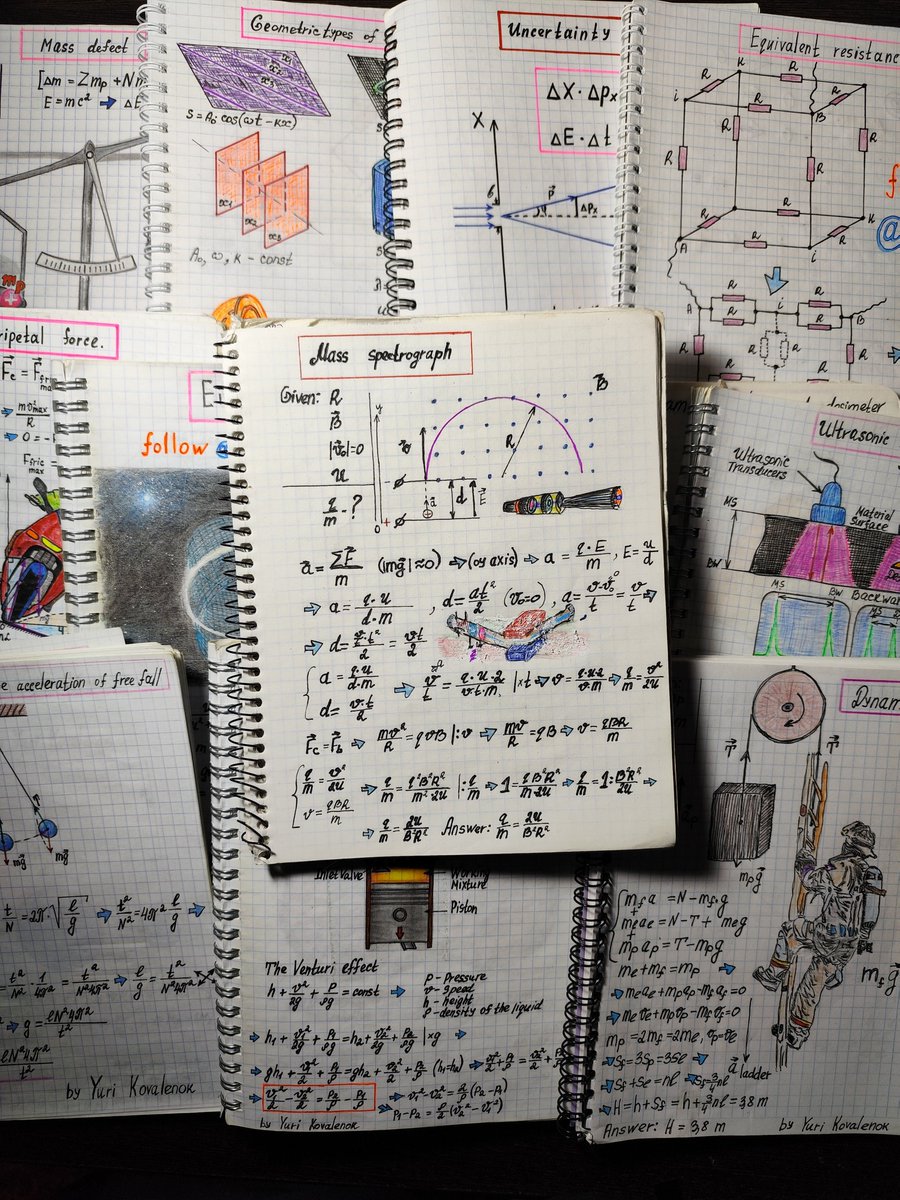 Mass defect
[Δm = Zmp + Nm
E = mc² ⇒ ΔE
mp
Geometric types of
x1
x2
x3
S = A₀·cos(ωt − кx)
x1
x2
x3
A₀, ω, к - const
Uncertainty
ΔX · Δpₓ
ΔE · Δt
X
δ
p⃗
φ
Δpₓ
Equivalent resistanc
R
K
i
B
A
@
A
i
B
R
ripetal force.
F⃗c = F⃗fr max
mv²max
R
Ffric max
follow
Mass spectrograph
Given: R
B⃗
|v⃗₀|=0
u
q/m - ?
y
0
v⃗
a⃗
d
E⃗
R
B⃗
a⃗ = ΣF⃗/m (|mg⃗|≈0) ⇒ (oy axis) ⇒ a = q·E/m, E = u/d
⇒ a = q·u/d·m , d = at²/2 (v⃗₀=0) , a = v-v₀⁰/t = v/t ⇒
⇒ d = v·t²/t·2 = vt/2
{ a = q·u/d·m
d = v·t/2 ⇒ v/t = q·u·2/v·t·m |×t ⇒ v = q·u·2/v·m ⇒ q/m = v²/2u
F⃗c = F⃗b ⇒ mv²/R = qvB |:v ⇒ mv/R = qB ⇒ v = qBR/m
{ q/m = v²/2u
v = qBR/m ⇒ q/m = q²B²R²/m²·2u |:q/m ⇒ 1 = qB²R²/m·2u ⇒ q/m = 1:B²R²/2u ⇒
⇒ q/m = 2u/B²R² Answer: q/m = 2u/B²R²
dosimeter
Ultrasonic
Ultrasonic
Transducers
MS
Material
Surface
BW
MS
BW
Backwa
MS
e acceleration of free fall
mg⃗
mg⃗
t/N = 2π·√l/g ⇒ t²/N² = 4π² l/g ⇒
t²/N² · 1/4π² = t²/N²4π² ⇒ l/g = t²/N²4π²
⇒ g = lN²4π²/t²
lN²4π²/t²
by Yuri Kovalenok
Inlet Valve
Working
Mixture
Piston
The Venturi effect
h + v²/2g + p/ρg = const ⇒
P - Pressure
v - speed
h - height
ρ - density of the liquid
⇒ h₁ + v₁²/2g + p₁/ρg = h₂ + v₂²/2g + p₂/ρg |×g ⇒
⇒ gh₁ + v₁²/2 + p₁/ρ = gh₂ + v₂²/2 + p₂/ρ (h₁=h₂) ⇒ v₁²/2 + p₁/ρ = v₂²/2 + p₂/ρ
⇒ v₁²/2 − v₂²/2 = p₂/ρ − p₁/ρ ⇒ v₁² − v₂² = 2/ρ (p₂ − p₁)
⇒ p₁ − p₂ = ρ/2 (v₂² − v₁²)
by Yuri Kovalenok
Dynam
T⃗
T⃗
mpg⃗
mfg⃗
a⃗ ladder
{ mf a = N − mf g
me ae = N − T + me g
mp ap = T − mp g
me + mf = mp ⇒
⇒ me ae + mp ap − mf af = 0
⇒ me ve + mp vp − mf vf = 0
mp = 2mf = 2me, vp = ve
⇒ Sf = 3Sp = 3Se ⇒
⇒ Sf + Se = nl ⇒ Sf = 3/4 nl
⇒ H = h + Sf = h + 3/4 nl = 3,8 m
Answer: H = 3,8 m
by Yuri Kovalenok